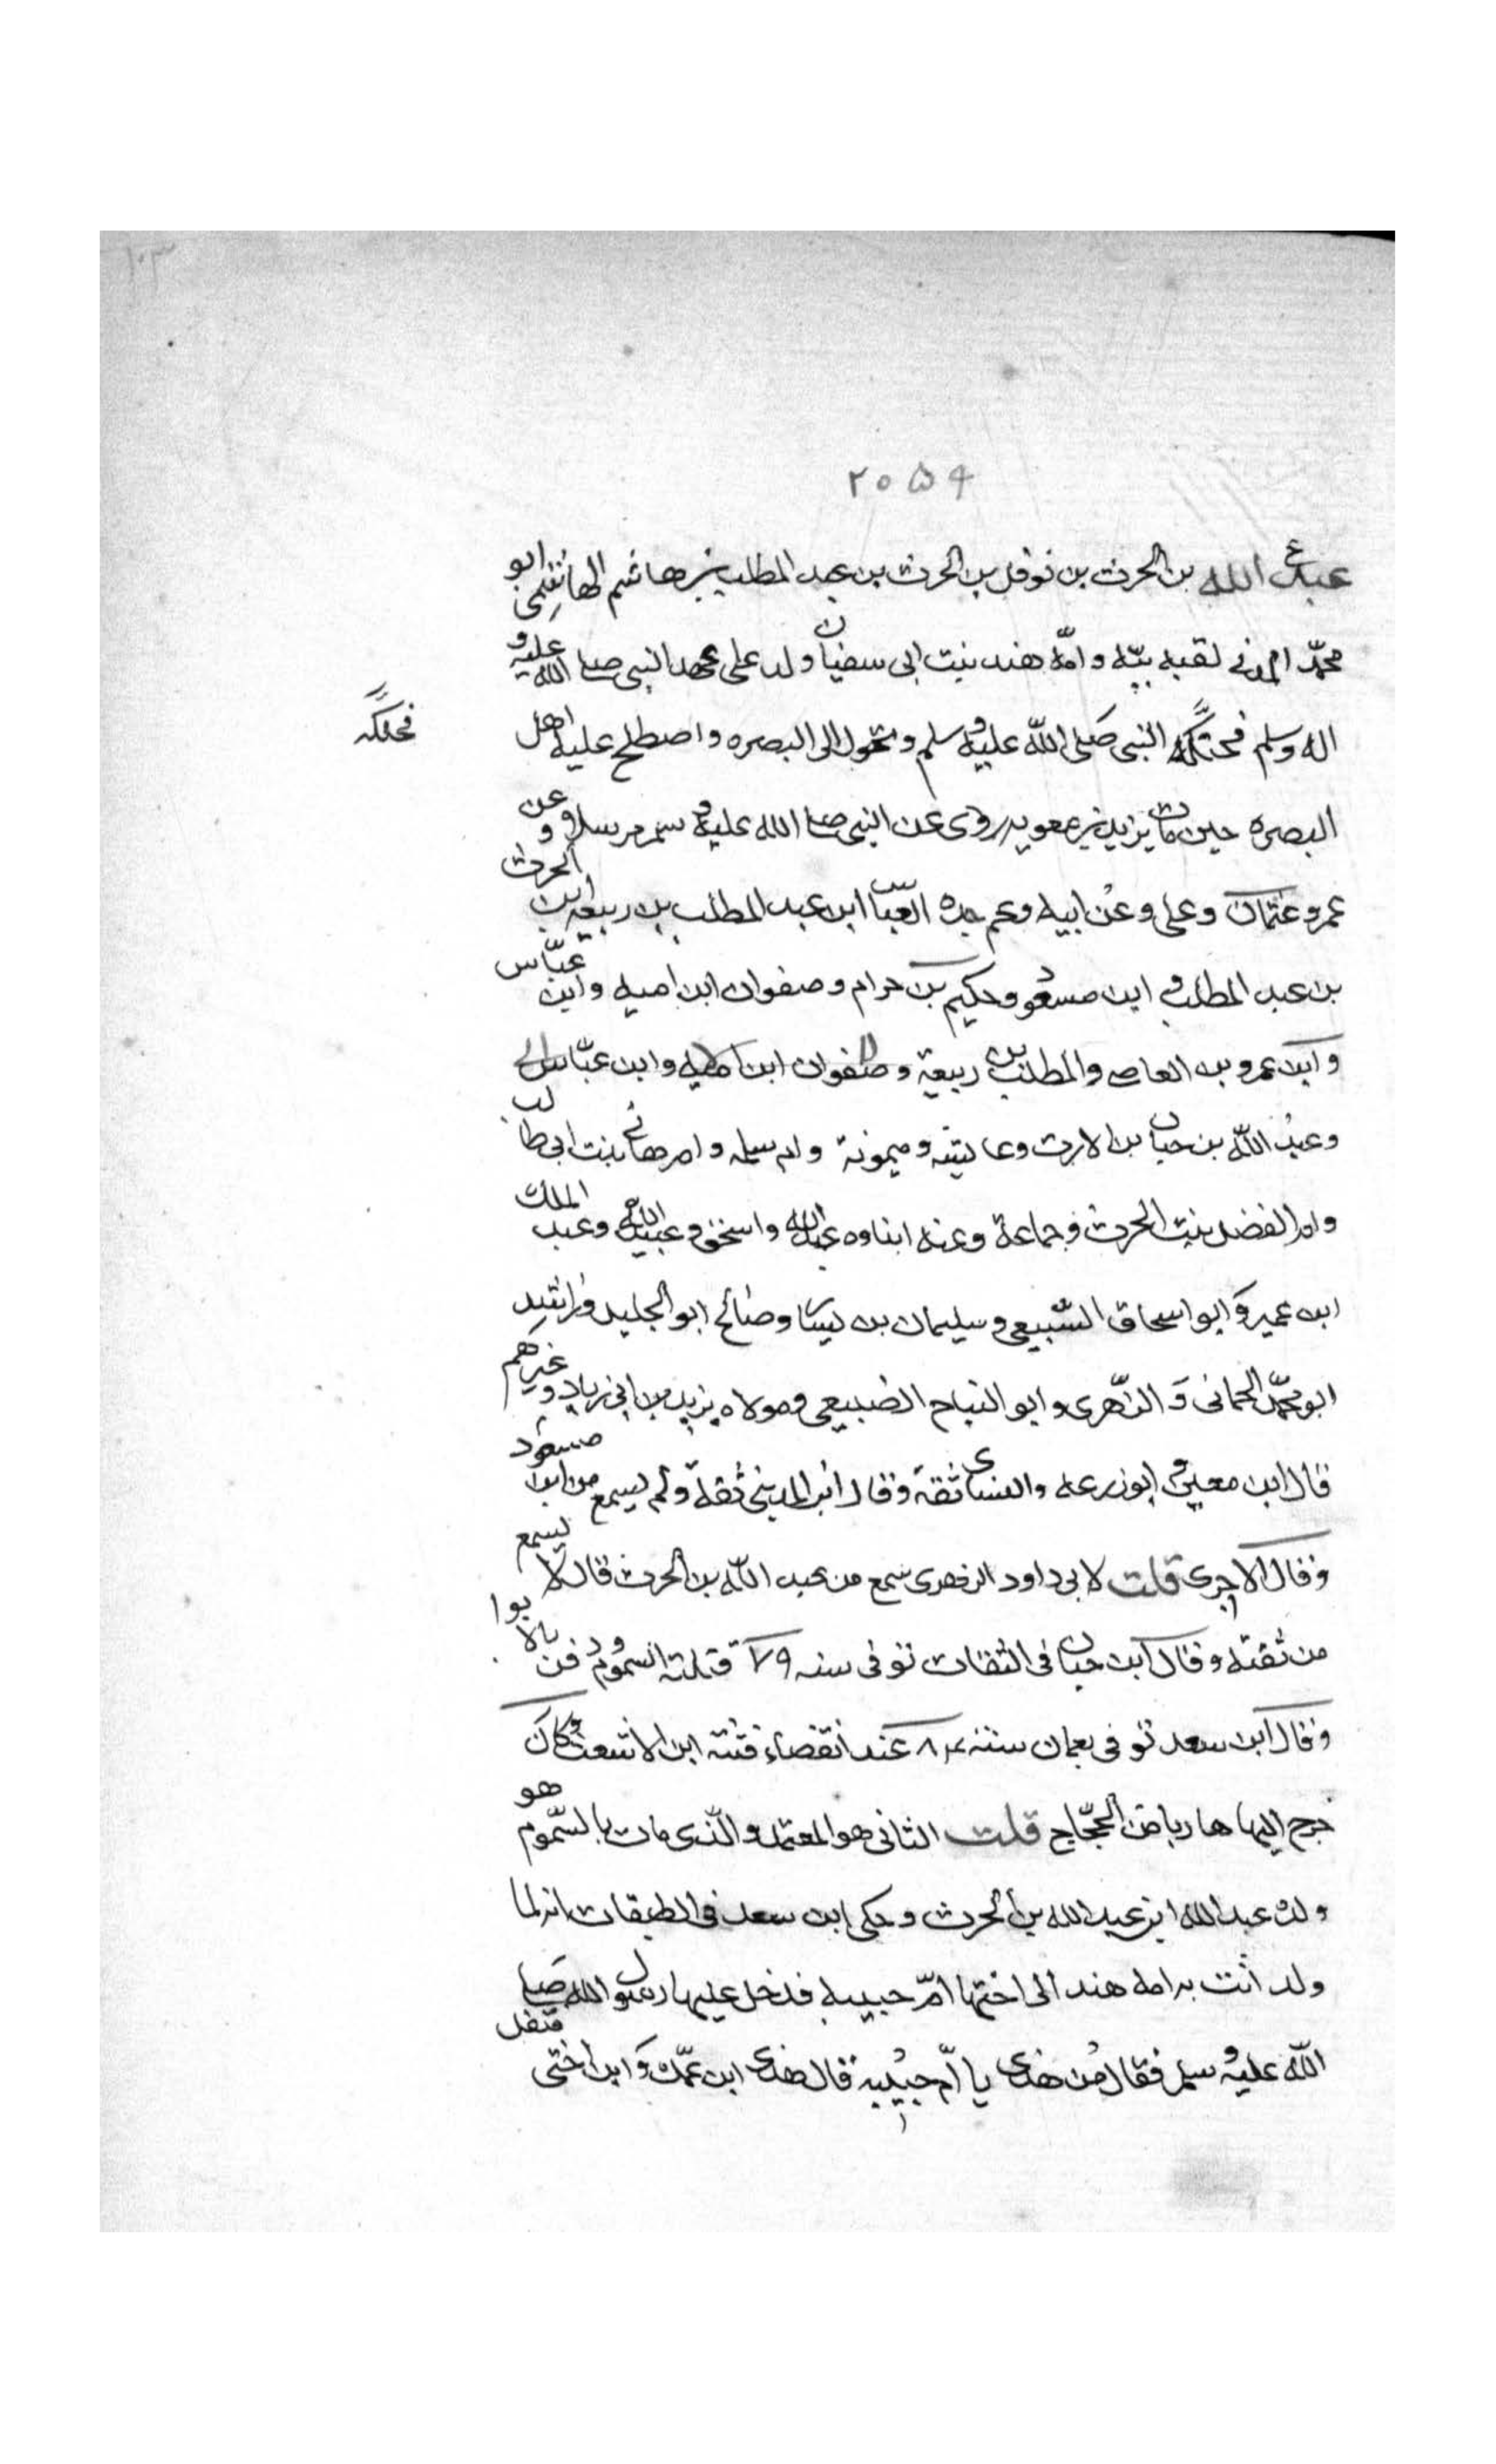 ١٠٣
٢٠٥٩
عبد الله بن الحرث بن نوفل بن الحرث بن عبد المطلب بن هاشم الهاشمي ابو
محمّد المدني لقبه ببّه وامّه هند بنت ابى سفيان ولد على عهد النبى صلى الله عليه و
اله وسلم فحنّكه النبى صَلى اللّه عليه وسلم وتحول الى البصره واصطلح عليه اهل
فحنّكه
البصره حين مات يزيد بن معويه روى عن النبى صلى الله عليه وسلم مرسلا و عن
عمر وعثمان وعلى وعن ابيه وعم جده العباس ابن عبد المطلب بن ربيعه ابن الحرث
بن عبد المطلب و ابن مسعود وحكيم بن حزام وصفوان ابن اميه وابن عبّاس
وابن عمرو بن العاص والمطلب بن ربيعة وصفوان ابن اميه وابن عبّاس
وعبد اللّه بن خباب بن الارت وعايشه وميمونة وام سلمه وام هانى بنت ابى طالب
وام الفضل بنت الحرث وجماعة وعنه ابناوه عبد الله واسحق وعبيد الله وعبد الملك
ابن عمير وابو اسحاق السّبيعى وسليمان بن يسار وصالح ابو الخليل وراشد
ابو محمّد الحمانى و الزّهرى وابو التياح الضبيعى ومولاه يزيد بن ابى زياد وغيرهم
قال ابن معين و ابو زرعه والنسائى ثقة وقال ابن المدينى ثقة ولم يسمع من ابن مسعود
وقال الاجرى قلت لابى داود الزهرى سمع من عبد اللّه بن الحرث قال لا يسمع
من ثقته وقال ابن حبان فى الثقات توفى سنه ٧٩ قتلته السموم ودفن بالابوا
وقال ابن سعد توفى بعمان سنة ٨٤ عند انقضاء فتنه ابن الاشعث وكان
خرج اليها هاربا من الحجّاج قلت الثانى هو المعتمد والّذى مات بالسّموم هو
ولده عبد الله ابن عبد الله بن الحرث وحكى ابن سعد فى الطبقات انه لما
ولد اتت به امه هند الى اختها امّ حبيبه فدخل عليها رسول الله صلى
اللّه عليه وسلم فقال من هذا يا امّ حبيبة قال هذا ابن عمّك وابن اختى فتفل